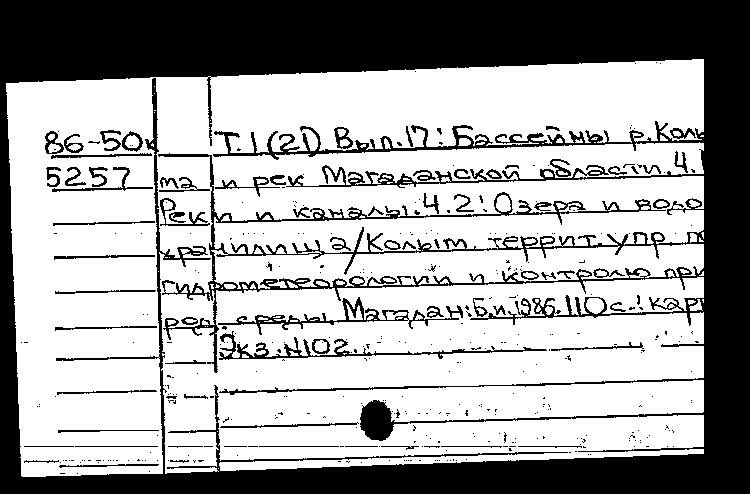 86-50к Т.1(21) Вып.17: Бассейны р.Колы
5257 ма и рек Магаданской области.Ч.1
Реки и каналы.Ч.2: Озера и водо
хранилища/Колым. террит. упр. по
гидрометеорологии и контролю при
род. среды. Магадан: Б.и, 1986. 110с.: карт
Экз. N102.